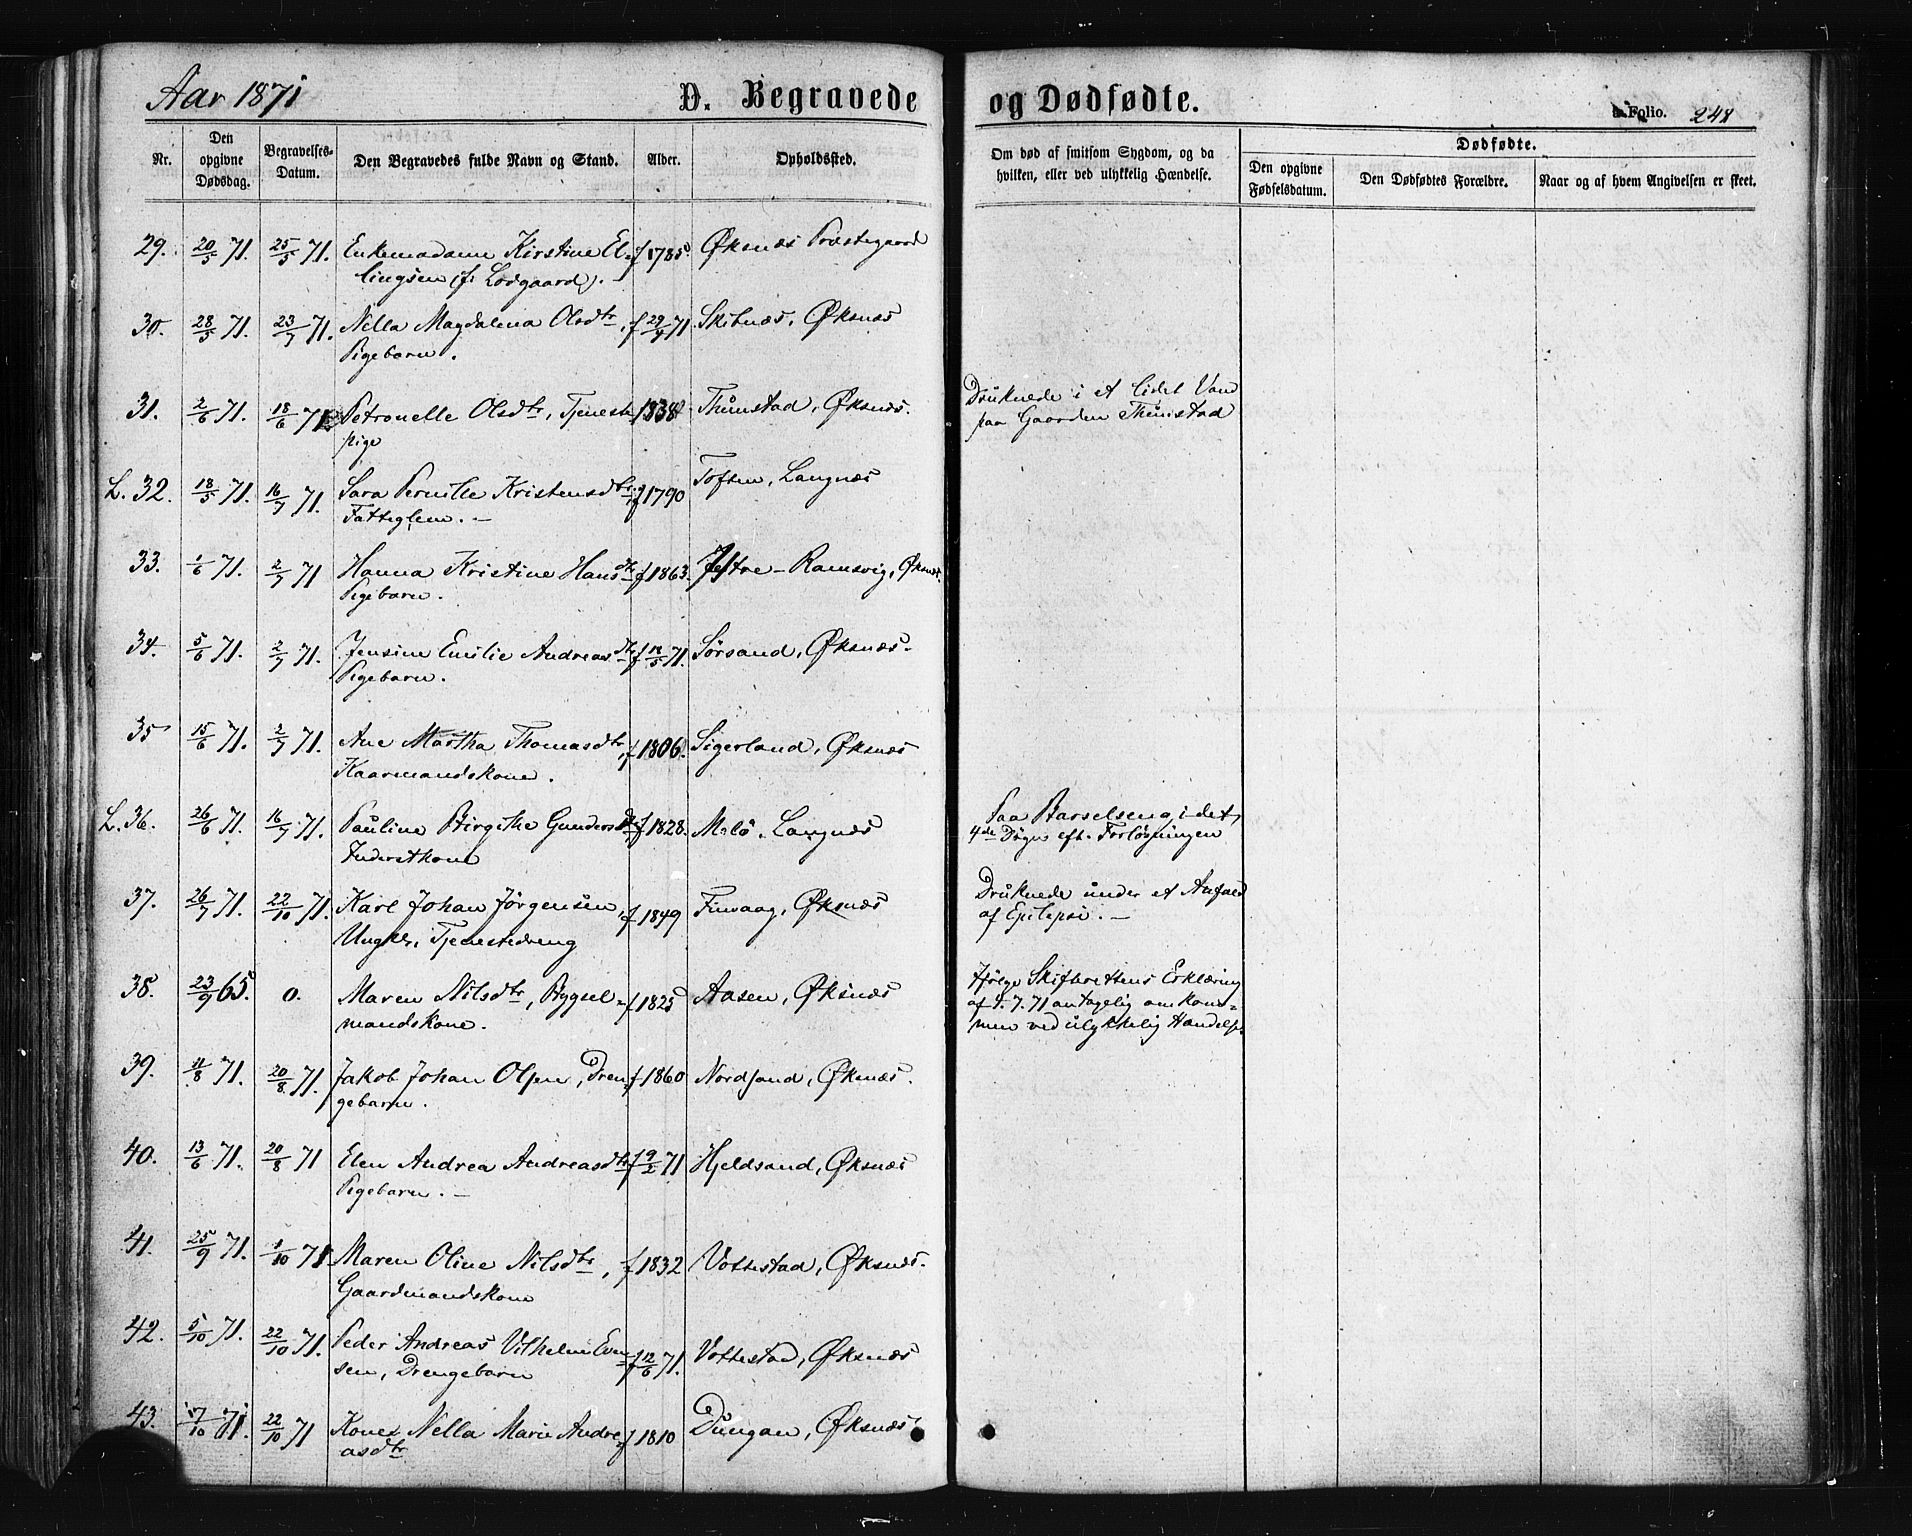 Aar 1871
D. Begravede
og Dødfødte.
b. Folio. 248
Nr.
Den opgivne Dødsdag.
Begravelses-Datum.
Den Begravedes fulde Navn og Stand.
Alder.
Opholdssted.
Om død af smitsom Sygdom, og da hvilken, eller ved ulykkelig Hændelse.
Dødfødte.
Den opgivne Fødselsdatum.
Den Dødfødtes Forældre.
Naar og af hvem Angivelsen er skeet.
29. 20/5 71. 25/5 71. Enkemadame Kirstine El- f 1785. Øksnæs Præstegaard
lingsen (f. Lodgaard). -
30. 28/5 71. 23/7 71. Nella Magdalena Olsdtr, f 29/4 71. Skibnæs, Øksnæs
Pigebarn.
31. 2/6 71. 18/6 71. Petronelle Olsdtr, Tjeneste 1838 Thunstad, Øksnæs. Druknede i et lidet Vand
pige paa Gaarden Thunstad
L. 32. 18/5 71. 16/7 71. Sara Pernille Kristensdtr f 1790 Toften, Langnæs
Fattiglem. -
33. 1/6 71. 2/7 71 Hanna Kristine Hansdtr f 1863. Ramsvig, Øksnæs.
Pigebarn.
34. 5/6 71. 2/7 71. Jensine Emilie Andreasdtr f 71. Sørsand, Øksnæs.
Pigebarn.
35 15/6 71. 2/7 71. Ane Martha Thomasdtr, f 1806. Sigerland, Øksnæs
Kaarmandskone.
L. 36. 26/6 71. 16/7 71. Pauline Birgithe Gundersdtr f 1828. Melö, Langnæs Paa Barselseng i det
Inderstkone 4de Døgn eft. Forløsningen
37. 26/7 71. 22/10 71. Karl Johan Jörgensen, f 1849 Finvaag, Øksnæs Druknede under et Anfald
Ungkl. Tjenestedreng af Epilepsi. -
38. 23/9 65. 0. Maren Nilsdtr, Bygsel- f 1825 Aasen, Øksnæs Ifølge Skifterettens Erklæring
mandskone. af 1. 7. 71 antagelig omkom-
men ved ulykkelig Hændelse.
39. 11/8 71. 20/8 71. Jakob Johan Olsen, Dren- f 1860 Nordsand, Øksnæs.
gebarn.
40. 13/6 71. 20/8 71 Elen Andrea Andreasdtr f 9/2 71 Hjeldsand, Øksnæs
Pigebarn. -
41. 25/9 71. 1/10 71 Maren Oline Nilsdtr, f 1832 Vottestad, Øksnæs.
Gaardmandskone
42. 5/10 71. 22/10 71. Peder Andreas Vilhelm Even- f 12/6 71. Vottestad, Øksnæs
sen, Drengebarn
43. 17/10 71. 22/10 71 Kone Nella Marie Andre- f 1810 Dungan, Øksnæs
asdtr